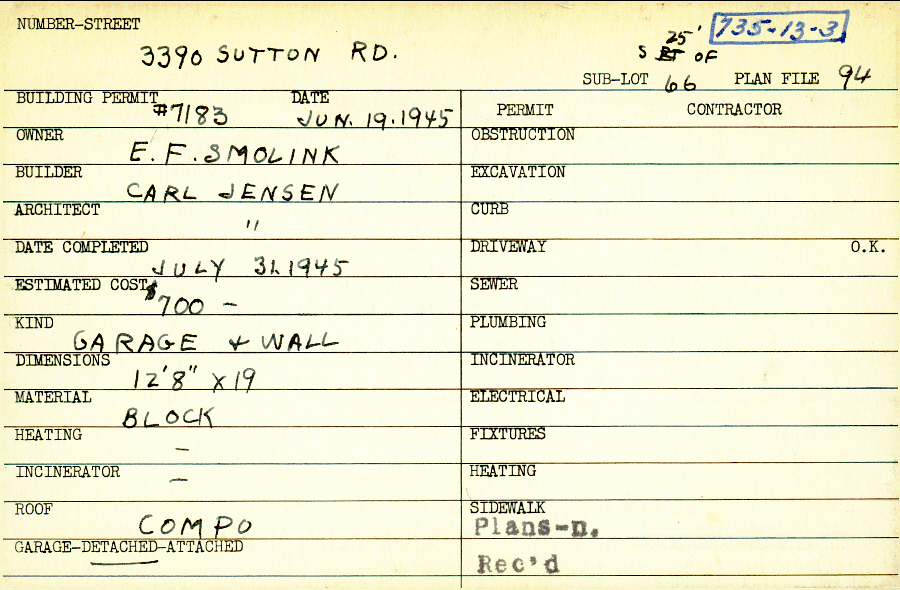 NUMBER-STREET
3390 SUTTON RD.
735-13-3
S 25' OF
SUB-LOT 66 PLAN FILE 94
BUILDING PERMIT #7183 DATE JUN. 19. 1945
PERMIT CONTRACTOR
OWNER E. F. SMOLINK
OBSTRUCTION
BUILDER CARL JENSEN
EXCAVATION
ARCHITECT "
CURB
DATE COMPLETED JULY 31. 1945
DRIVEWAY O.K.
ESTIMATED COST $700 -
SEWER
KIND GARAGE & WALL
PLUMBING
DIMENSIONS 12'8" X 19
INCINERATOR
MATERIAL BLOCK
ELECTRICAL
HEATING -
FIXTURES
INCINERATOR -
HEATING
ROOF COMPO
SIDEWALK
Plans-n.
GARAGE-DETACHED-ATTACHED
Rec'd